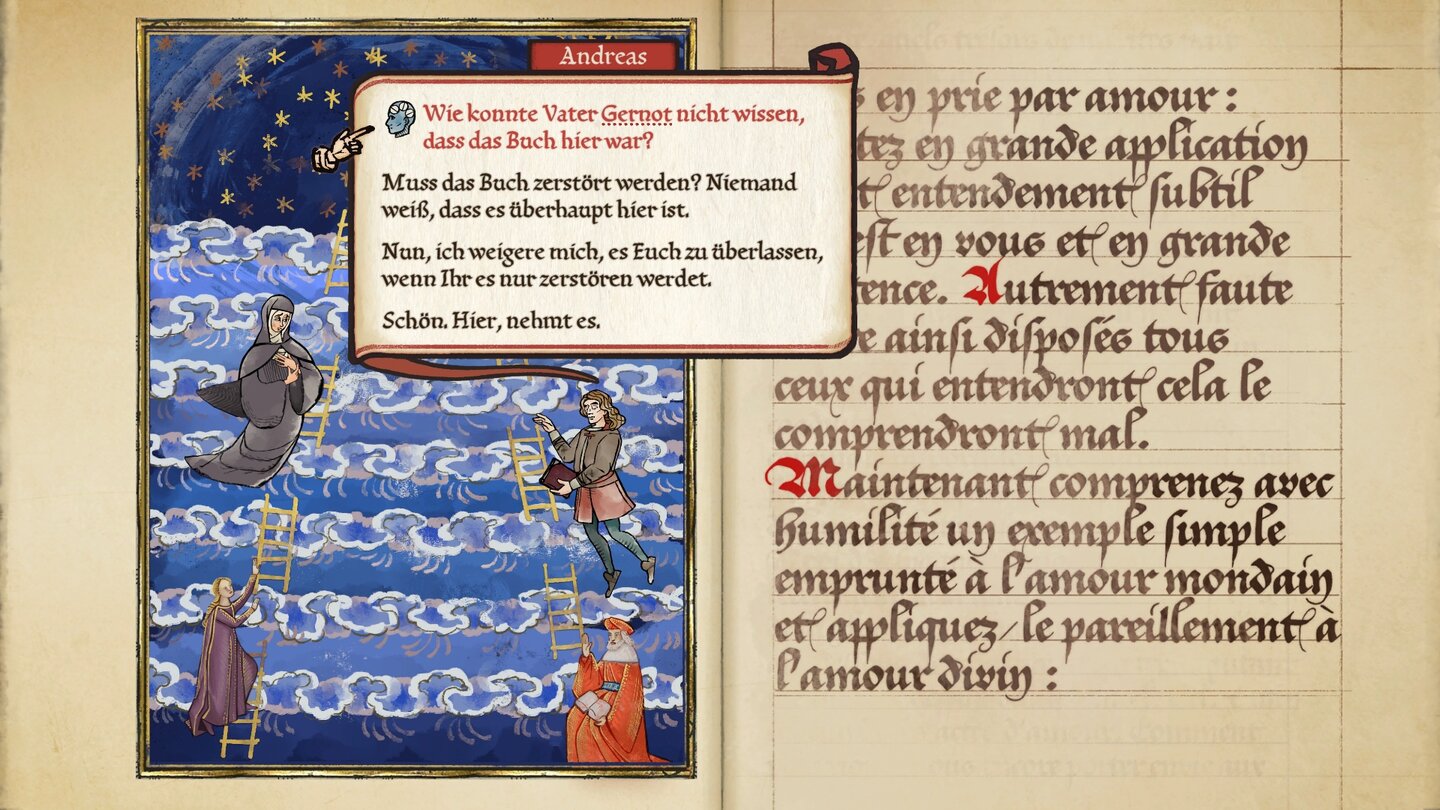 Andreas
Wie konnte Vater Gernot nicht wissen,
dass das Buch hier war?
Muss das Buch zerstört werden? Niemand
weiß, dass es überhaupt hier ist.
Nun, ich weigere mich, es Euch zu überlassen,
wenn Ihr es nur zerstören werdet.
Schön. Hier, nehmt es.
en prie par amour :
en grande application
entendement subtil
en vous et en grande
Autrement faute
ainsi disposés tous
ceux qui entendront cela le
comprendront mal.
Maintenant comprenez avec
humilité un exemple simple
emprunté à l'amour mondain
et appliquez-le pareillement à
l'amour divin :